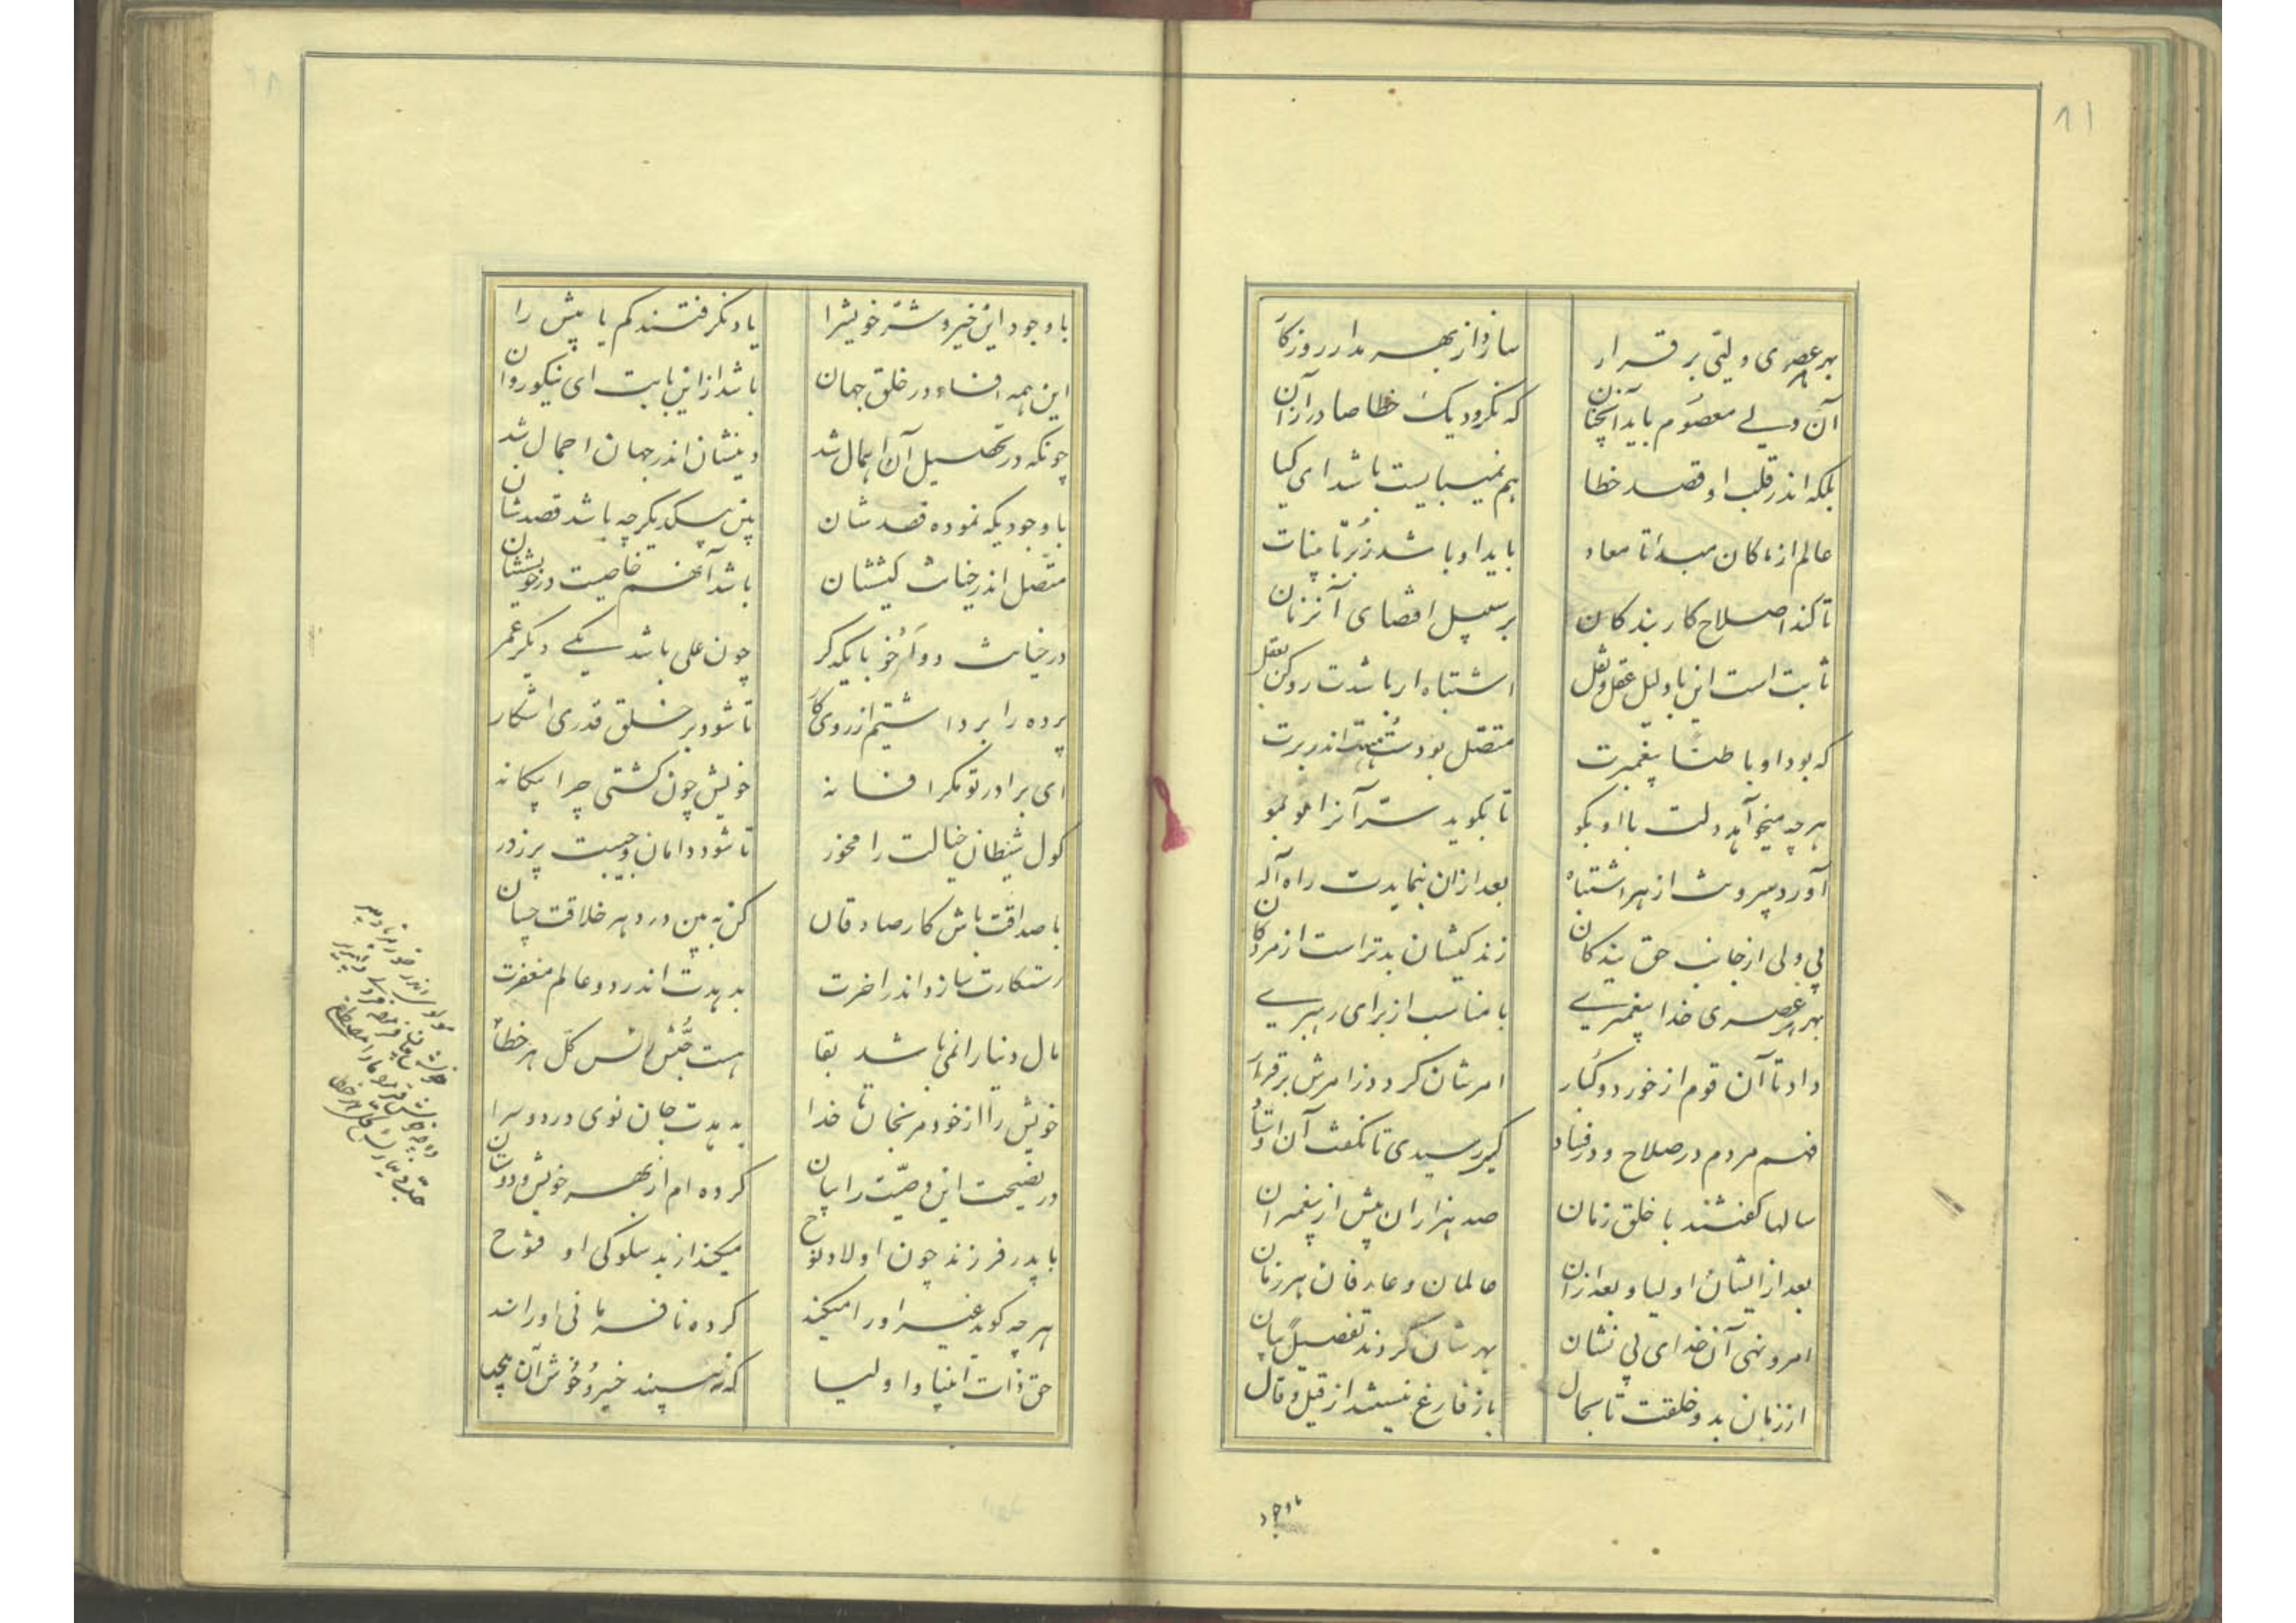 ۸۱
بهر عصری ولیّی برقرار سازد از بهر مدار روزکار
آن ولی معصوم باید آنچنان که نکرود یک خطا صادر از آن
بلکه اندر قلب او قصد خطا هم نمیبایست باشد ای کیا
عالم از ماکان مبدا تا معاد باید او باشد
تا کند اصلاح کار بندکان بر سبیل اقتضای آنزمان
ثابت است این با دلیل عقل و نقل اشتباه ار باشدت رو کن بعقل
که بود او باطنًا پیغمبرت متصل بودست اندر برت
هرچه میخوآهد دلت با او بکو تا بکوید سرّ آنرا مو بمو
آورد بیرونت از هر اشتباه بعد از ان بنمایدت راه آله
بی ولی از جانب حق بندکان زندکیشان بدتر است از مردکان
بهر هر عصری خدا پیغمبری با مناسب از برای رهبری
داد تا آن قوم از خورد و کبار امرشان کردد ز امرش برقرار
فهم مردم در صلاح و در فساد کی رسیدی تا نکفت آن اوستاد
سالها کفتند با خلق زمان صد هزاران بیش از پیغمبران
بعد از ایشان اولیا و بعد از ان عالمان و عارفان هر زمان
امر و نهی آن خدای بی نشان بهرشان کردند تفصیلًا بیان
از زمان بدو خلقت تا بحال باز فارغ نیستند از قیل و قال
باوجود
با وجود این خیر و شرّ خویشرا یاد نکرفتند کم یا بیش را
این همه افساد در خلق جهان باشد از این بابت ای نیکو روان
چونکه در تحصیل آن اهمال شد دینشان اندر جهان اجمال شد
با وجودیکه نموده قصدشان بین بیکدیکر چه باشد قصدشان
متّصل اندر خیانت کیششان باشد آنهم خاصیت در خویششان
در خیانت دو اَخُو با یکدکر چون علی باشد یکی دیکر عمر
پرده را برداشتیم از روی کار تا شود بر خلق قدری اشکار
ای برادر تو مکر افسانه خویش چون کشتی چرا بیکانه
کول شیطان خیالت را مخور تا شود دامان و جیبت پر زدر
با صداقت باش کار صادقان کن به بین در دهر خلاقت چسان
رستکارت سازد اندر اخرت بدهدت اندر دو عالم مغفرت
مال دنیا را نمی باشد بقا هست حُبّش رأس کلّ هر خطا
خویش را از خود مرنجان تا خدا بدهدت جان نوی در دو سرا
در نصیحت این وصیّت را بیان کرده ام از بهر خویش و دوستان
با پدر فرزند چون اولاد نوح میکند از بد سلوکی او فتوح
هر چه کوید غیر او را میکند کرده نافرمانی او را سند
حق ذات انبیا و اولیا که نه بیند خیر و خوش آن بیحیا